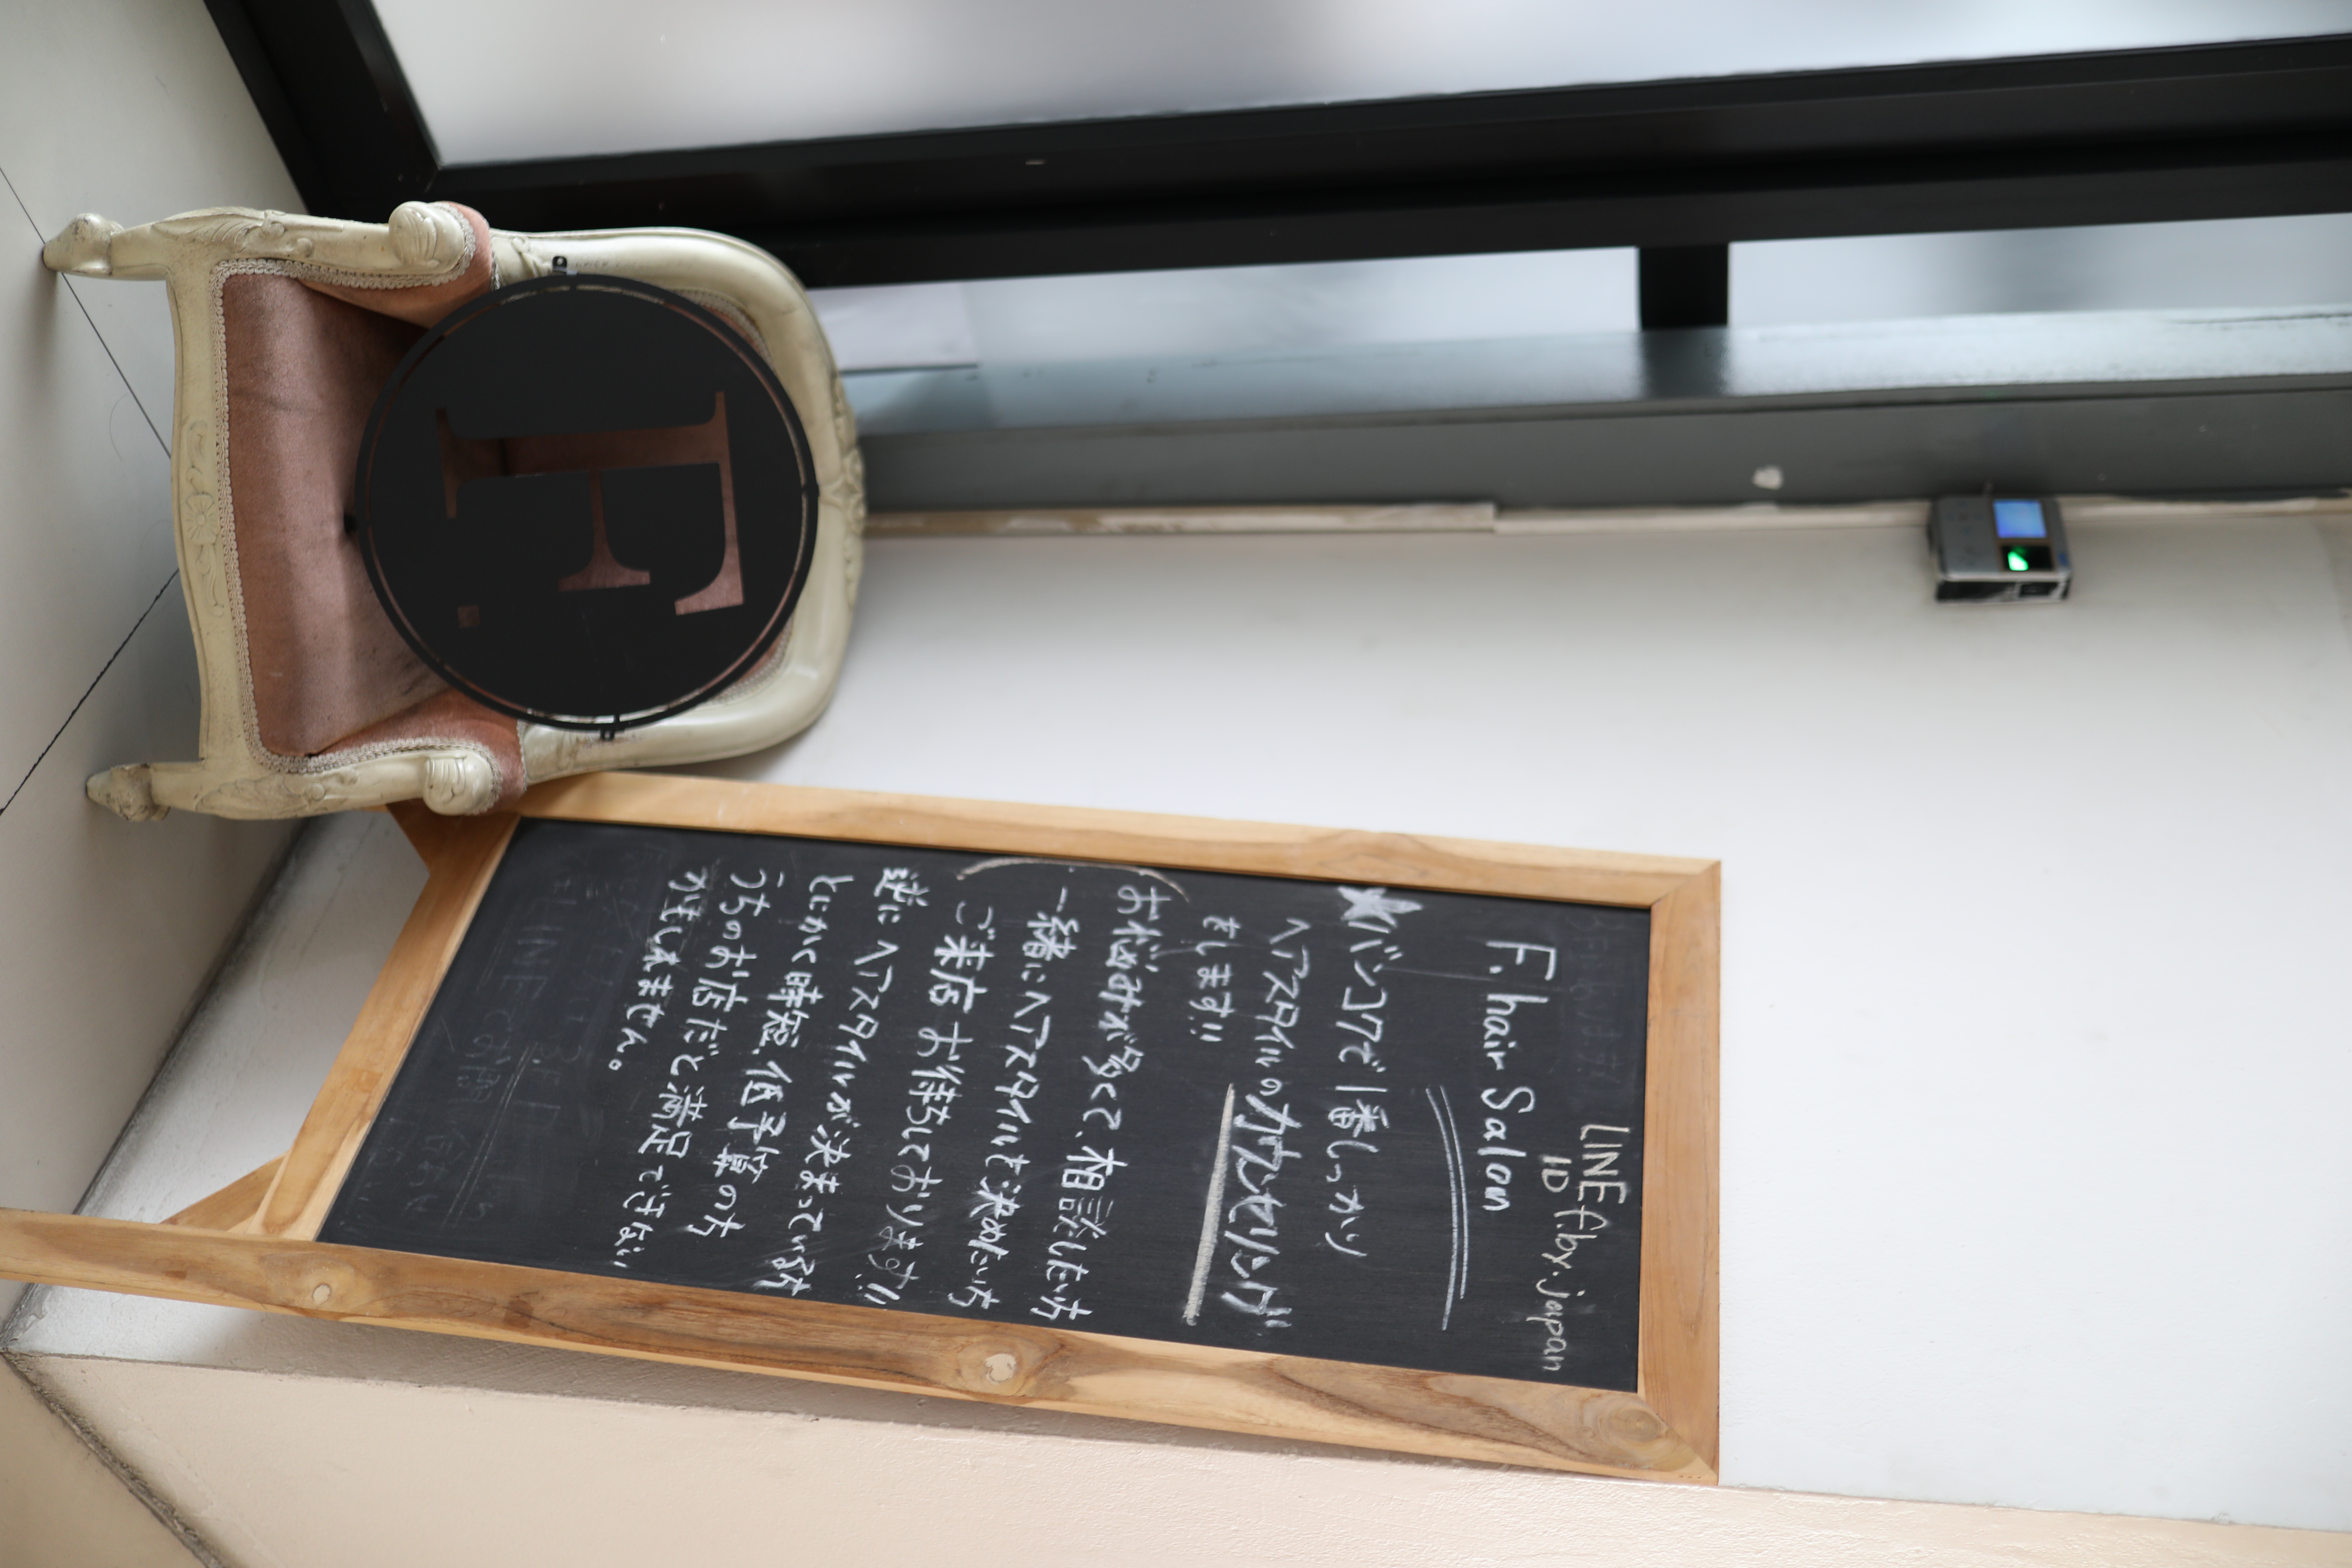 F.
LINE
ID f.by.japan
F. hair Salon
★バンコクで1番しっかり
ヘアスタイルのカウンセリング
をします!!
お悩みが多くて、相談したい方
一緒にヘアスタイルを決めたい方
ご来店お待ちしております!!
逆にヘアスタイルが決まっている方
とにかく時短、低予算の方
うちのお店だと満足できない
かもしれません。